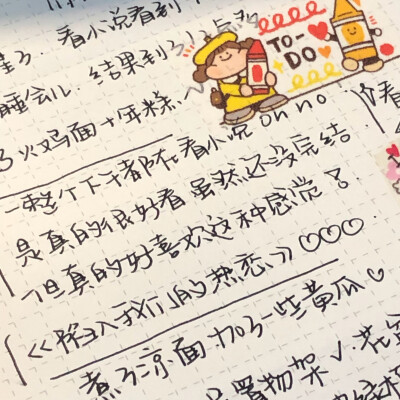 看小说看到
睡会儿.结果到
了火鸡面+年糕、
TO-
DO
一整个下午都在看小说 oh no
是真的很好看虽然还没完结
但真的好喜欢这种感觉
《陷入我们的热恋》♡♡♡
煮了凉面加了一些黄瓜♡
置物架✓.花